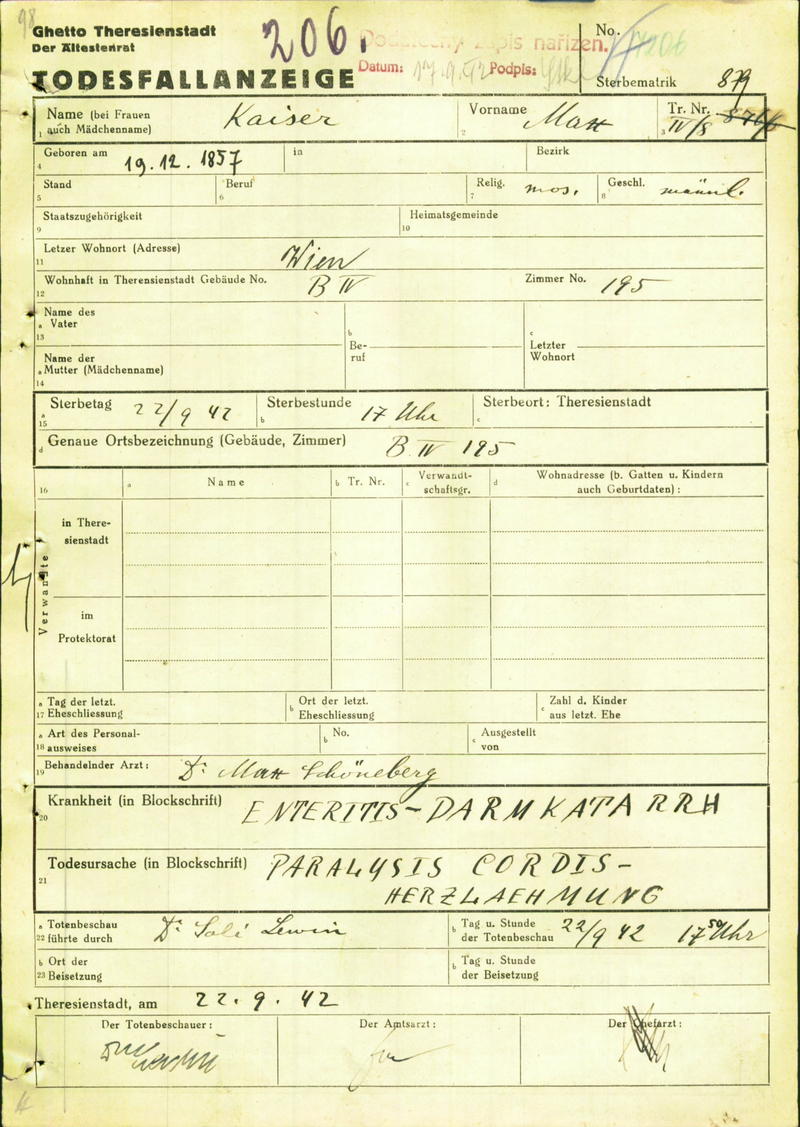 98
Ghetto Theresienstadt
Der Ältestenrat
TODESFALLANZEIGE
206.
Dodatečný zápis nařízen.
Datum: 17.9.52 Podpis:
No.
7206
Sterbematrik 879
Name (bei Frauen auch Mädchenname) Kaiser
1
Vorname Max
2
Tr. Nr. IV/8
3
Geboren am 19.12.1857
4
in
Bezirk
Stand
5
Beruf
6
Relig. mos.
7
Geschl. männl.
8
Staatszugehörigkeit
9
Heimatsgemeinde
10
Letzer Wohnort (Adresse) Wien
11
Wohnhaft in Therensienstadt Gebäude No. B IV
12
Zimmer No. 195
Name des
a Vater
13
b
Be-
ruf
c
Letzter
Wohnort
Name der
a Mutter (Mädchenname)
14
Sterbetag 22/9 42
a
15
Sterbestunde 17 Uhr
b
Sterbeort: Theresienstadt
c
d Genaue Ortsbezeichnung (Gebäude, Zimmer) B IV 195
16
a Name
b Tr. Nr.
c Verwandt-
schaftsgr.
d Wohnadresse (b. Gatten u. Kindern
auch Geburtdaten):
Verwandte
in There-
sienstadt
im
Protektorat
a Tag der letzt.
17 Eheschliessung
b Ort der letzt.
Eheschliessung
c Zahl d. Kinder
aus letzt. Ehe
a Art des Personal-
18 ausweises
b No.
c Ausgestellt
von
Behandelnder Arzt: Dr. Max Schöneberg
19
Krankheit (in Blockschrift) ENTERITIS-DARMKATARRH
20
Todesursache (in Blockschrift) PARALYSIS CORDIS-
21
HERZLAEHMUNG
a Totenbeschau
22 führte durch Dr. Sali Lewin
b Tag u. Stunde
der Totenbeschau 22/9 42 17 50 Uhr
b Ort der
23 Beisetzung
b Tag u. Stunde
der Beisetzung
Theresienstadt, am 22.9.42
Der Totenbeschauer:
Der Amtsarzt:
Der Chefarzt: